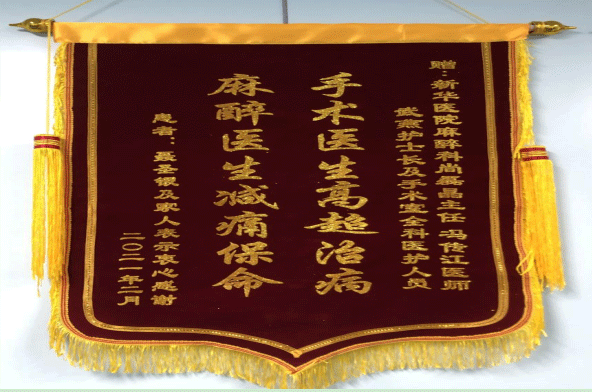 赠：新华医院麻醉科尚晶主任 冯传江医师
武燕护士长及手术室全科医护人员
手术医生高超治病
麻醉医生减痛保命
患者：聂圣银及家人表示衷心感谢
二〇二一年二月